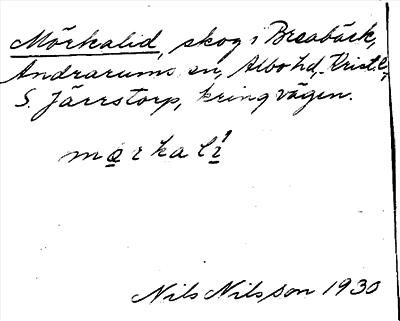 Mörkalid, skog i Breabäck,
Andrarums sn, Albo hd, Krist. l.,
S. Järrstorp, kring vägen.
mørkalì
Nils Nilsson 1930